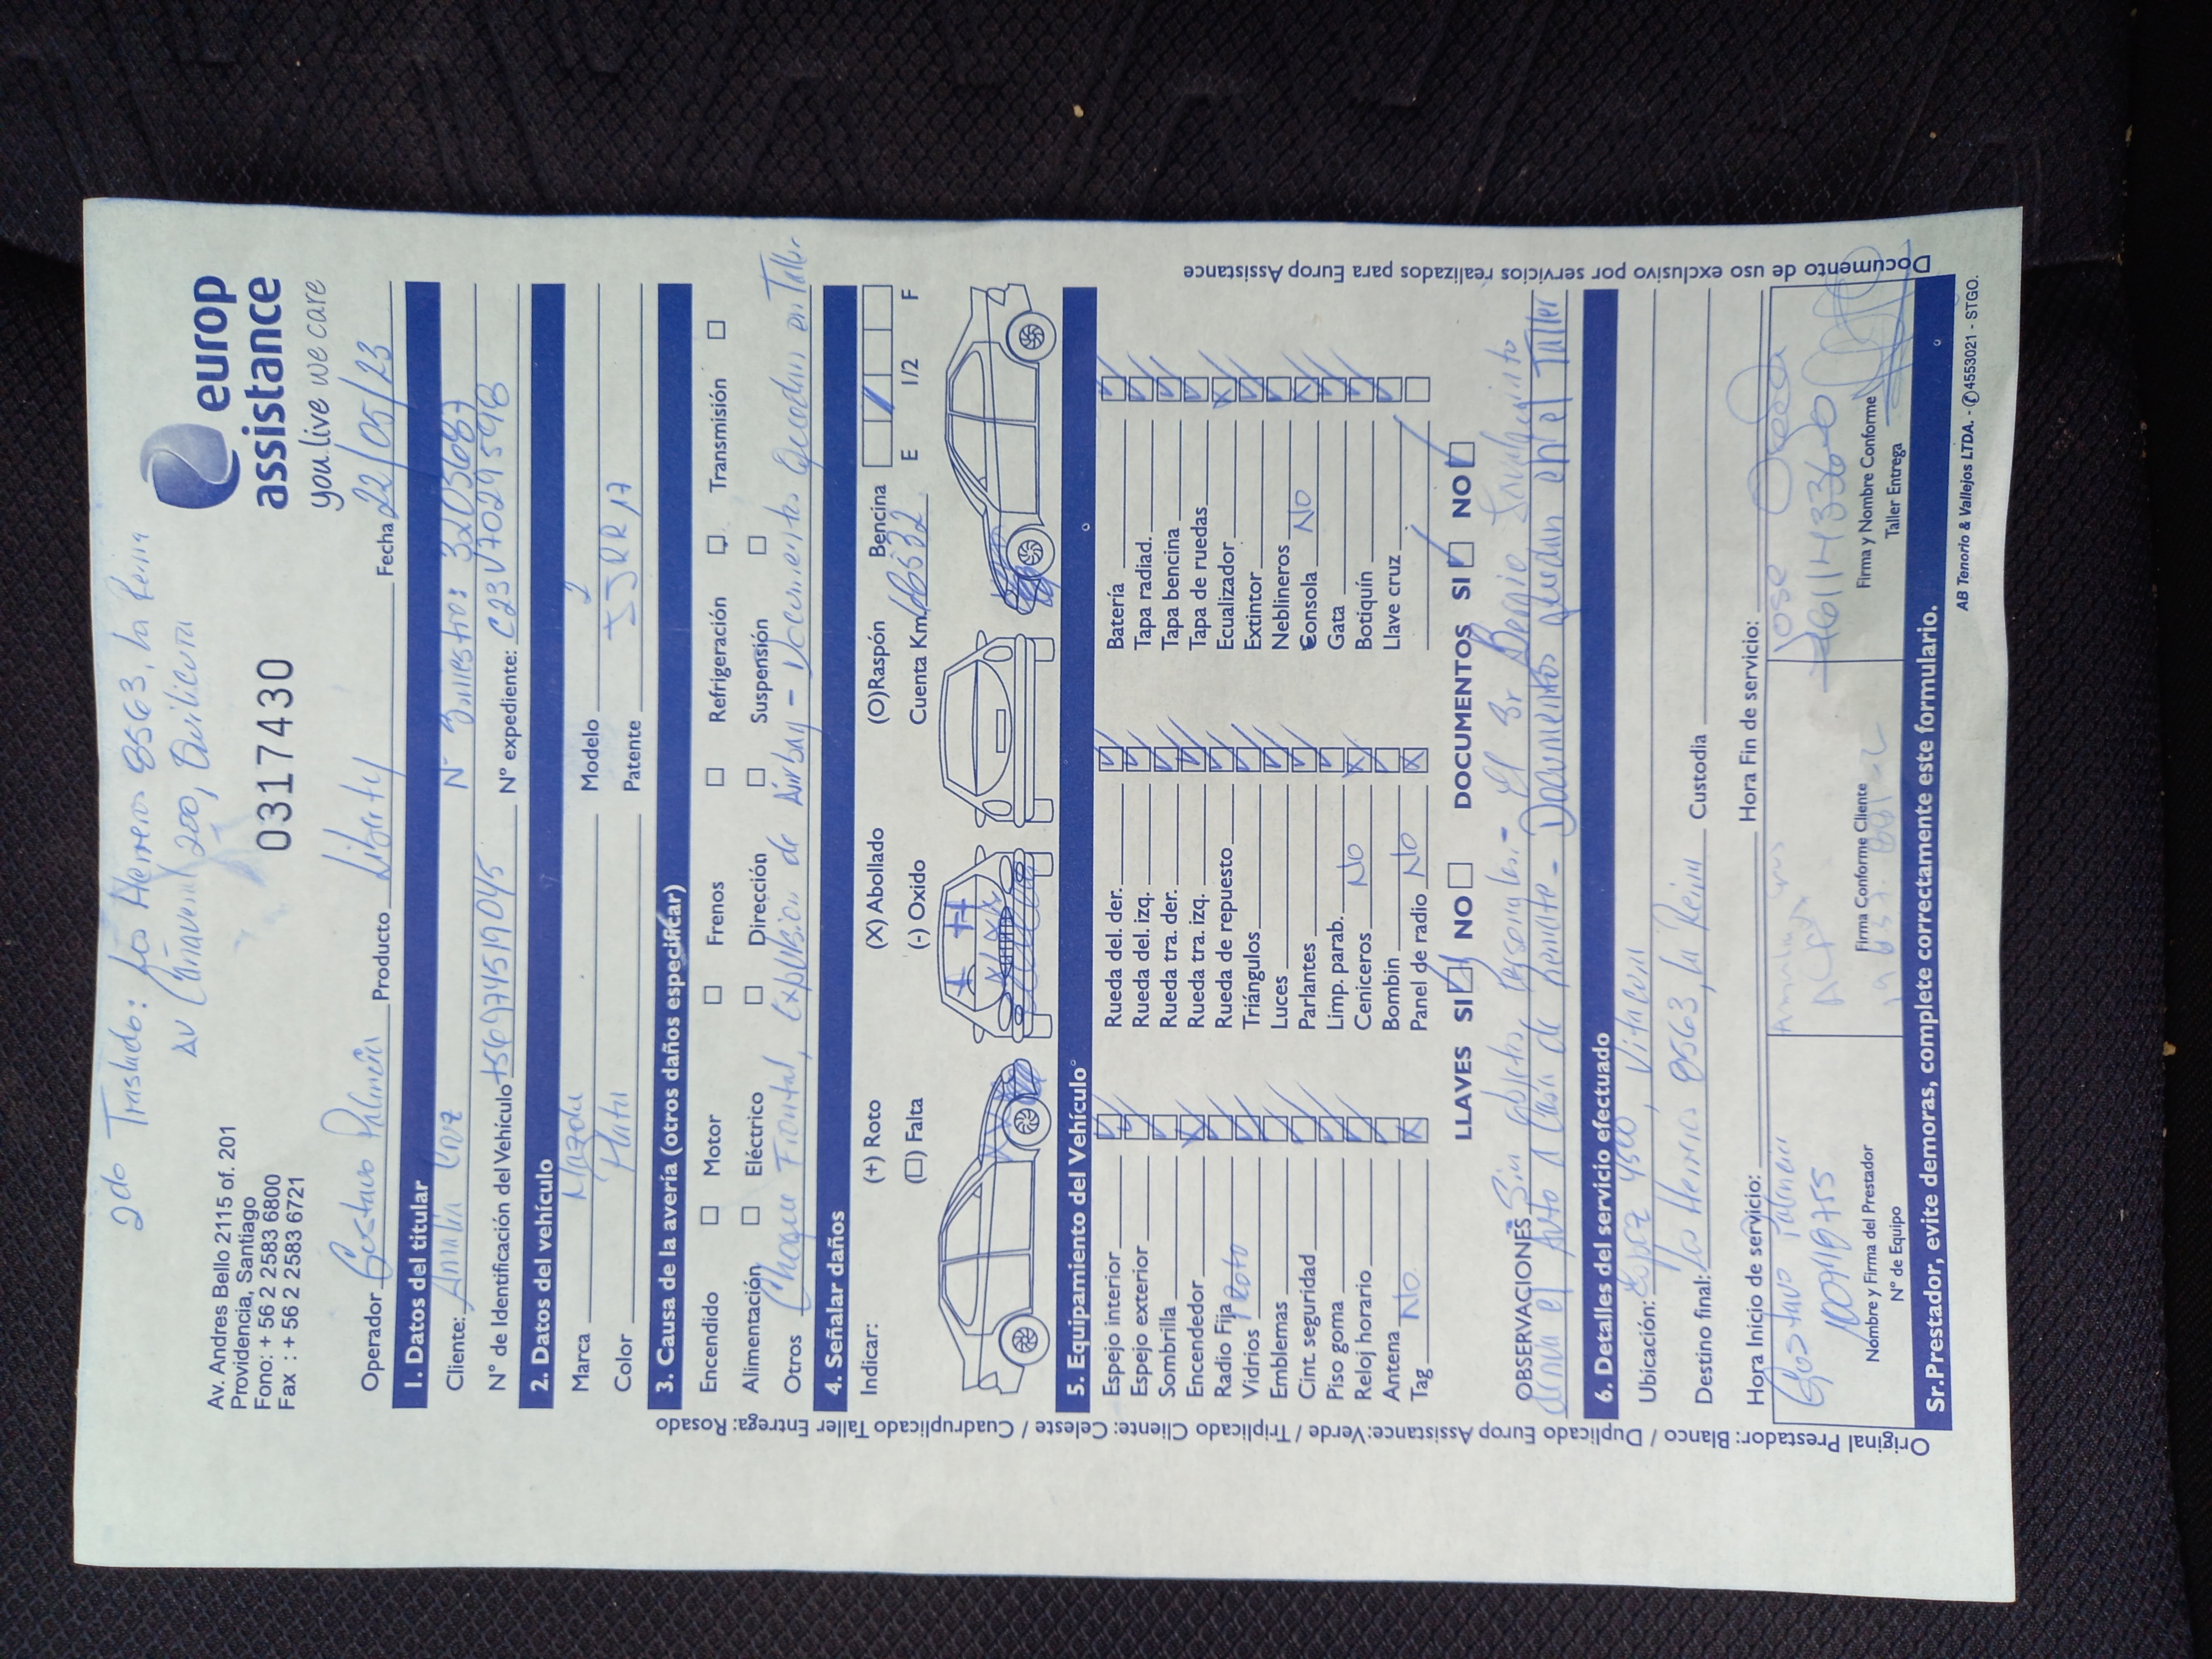 2do Traslado: Los Herreros 8563, La Reina
Av Cañaveral 200, Quilicura
Av. Andres Bello 2115 of. 201
Providencia, Santiago
Fono: + 56 2 2583 6800
Fax : + 56 2 2583 6721
0317430
europ
assistance
you live we care
Operador Gustavo Palencia Producto Liberty Fecha 22/05/23
1. Datos del titular
Cliente: Cruz N° Siniestro: 3203687
N° de Identificación del Vehículo +56974519045 N° expediente: C23V7029598
2. Datos del vehículo
Marca Mazda Modelo 2
Color Plata Patente JJRR17
3. Causa de la avería (otros daños especificar)
Encendido Motor Frenos Refrigeración Transmisión
Alimentación Eléctrico Dirección Suspensión
Otros Choque Frontal, Explosion de Airbag - Documentos Quedan en Taller
4. Señalar daños
Indicar: (+) Roto (X) Abollado (O)Raspón Bencina E 1/2 F
(☐) Falta (-) Oxido Cuenta Km.
5. Equipamiento del Vehículo
Espejo interior Rueda del. der. Batería
Espejo exterior Rueda del. izq. Tapa radiad.
Sombrilla Rueda tra. der. Tapa bencina
Encendedor Rueda tra. izq. Tapa de ruedas
Radio Fija Rueda de repuesto Ecualizador
Vidrios Roto Triángulos Extintor
Emblemas Luces Neblineros
Cint. seguridad Parlantes Consola No
Piso goma Limp. parab. Gata
Reloj horario Ceniceros No Botiquín
Antena Bombin Llave cruz
Tag No Panel de radio No
LLAVES SI NO DOCUMENTOS SI NO
OBSERVACIONES Sin objetos personales - El Sr
el Auto a Casa de - Documentos quedan en el Taller
6. Detalles del servicio efectuado
Ubicación: 4500, Vitacura
Destino final: Los Herreros 8563, La Reina Custodia
Hora Inicio de servicio: Hora Fin de servicio:
Gustavo Palencia
Jose Ojeda
Nombre y Firma del Prestador
N° de Equipo
Firma Conforme Cliente
Firma y Nombre Conforme
Taller Entrega
Sr.Prestador, evite demoras, complete correctamente este formulario.
AB Tenorio & Vallejos LTDA. - ✆4553021 - STGO.
Original Prestador: Blanco / Duplicado Europ Assistance:Verde / Triplicado Cliente: Celeste / Cuadruplicado Taller Entrega: Rosado
Documento de uso exclusivo por servicios realizados para Europ Assistance